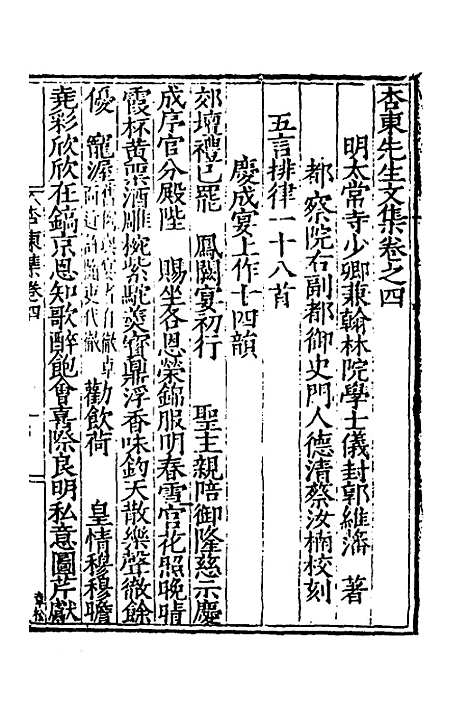 杏東先生文集卷之四
明太常寺少卿兼翰林院學士儀封郭維藩 著
都察院右副都御史門人德清蔡汝楠校刻
五言排律一十八首
慶成宴上作十四韻
郊壇禮已罷 鳳闕宴初行 聖主親陪御隆慈示慶
成序官分殿陛 賜坐各恩榮錦服明春雪宫花照晚晴
霞杯黄栗酒雕椀紫駝羹寳鼎浮香味鈞天散樂聲徹餘
優 寵渥 勸飲荷 皇情穆穆瞻
堯彩欣欣在鎬京恩知歌醉飽會喜際良明私意圖芹獻
杏東集卷四